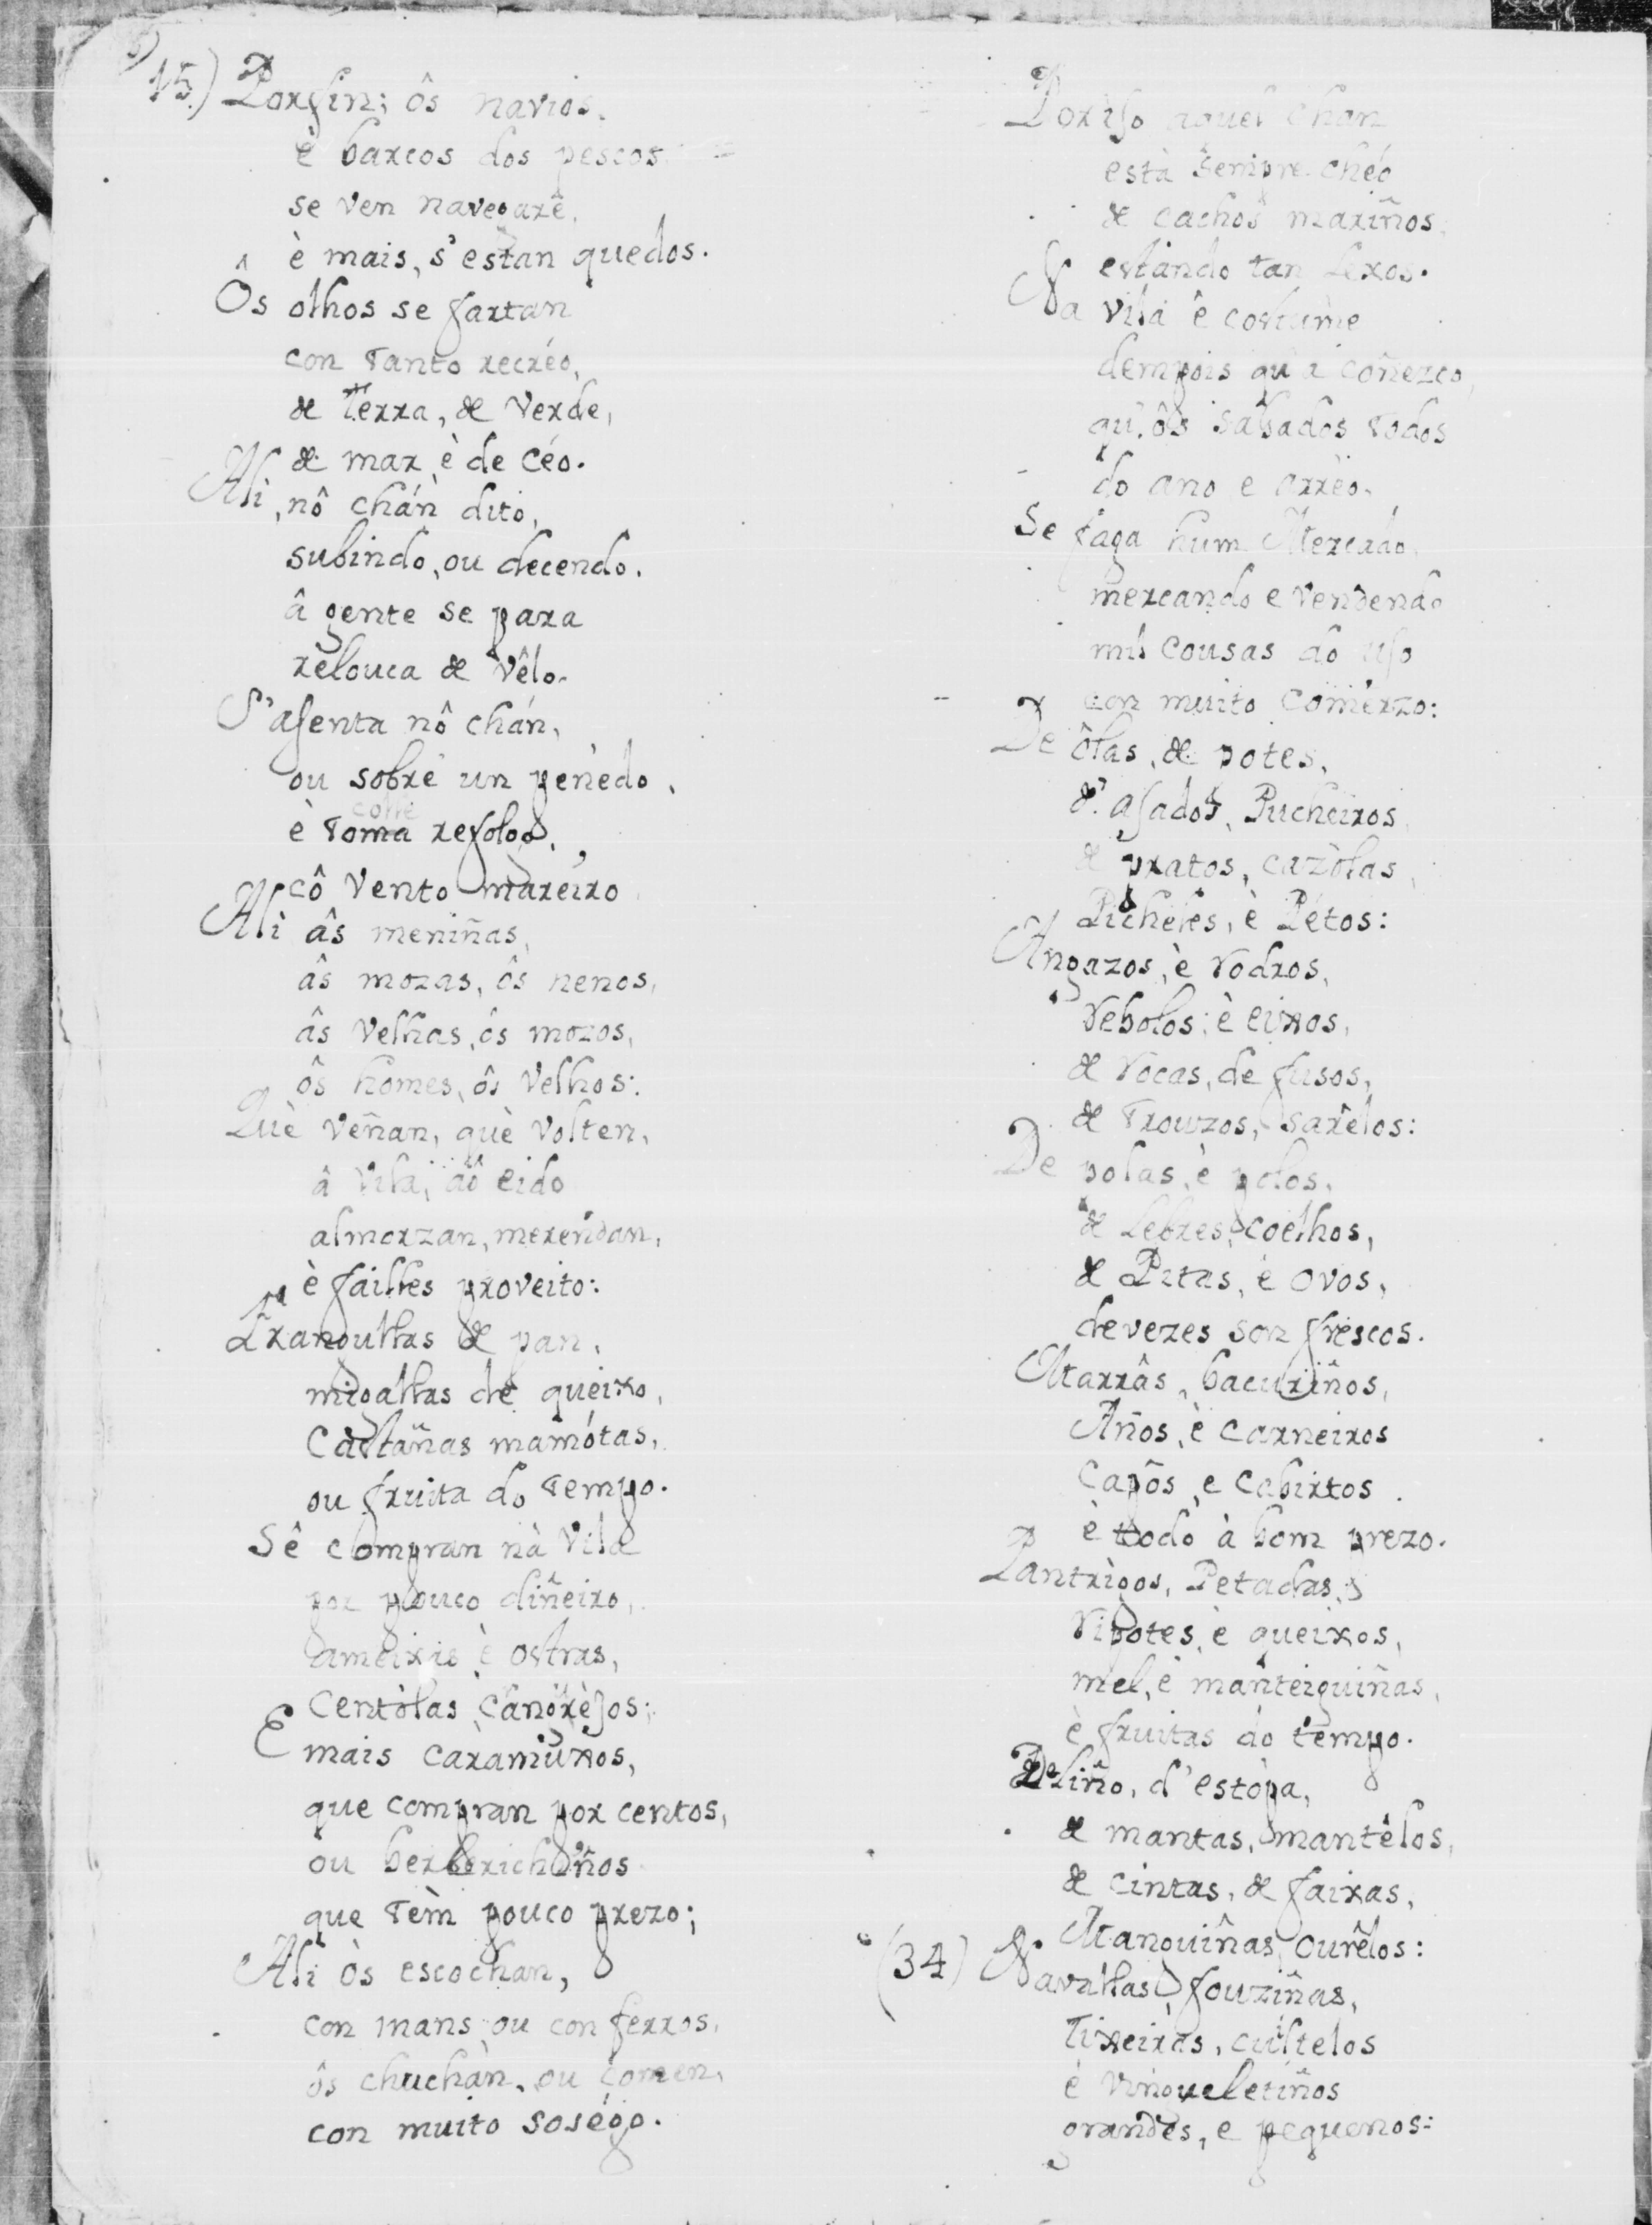 15.) Porfin; ôs navios.
è barcos dos pescos
se ven navegarê,
è mais, s'estan quedos.
Ôs olhos se fartan
con tanto recréo,
de terra, de verde,
de mar è de céo.
Ali, nô chán dito,
subindo, ou decendo.
â gente se para
rèlouca de vêlo.
S'asenta nô chán,
ou sobre un penèdo,
è toma colle refolgo,
cô vento mareiro
Ali âs meniñas,
âs mozas, ôs nenos,
âs velhas, ôs mozos,
ôs homes, ôs velhos:
Què veñan, què volten,
â vila, aô eido
almorzan, merendan,
è failles proveito:
Frangullas de pan,
migallas de queixo,
Castañas mamótas,
ou fruita do tempo.
Sê compran nà vila
por pouco diñeiro,
ameixas è ostras,
Centòlas, cangrèjos;
E mais caramuxos,
que compran por centos,
ou berberichiños
que tèm pouco prezo;
Ali òs escochan,
con mans ou con ferros,
ôs chuchàn, ou comen,
con muito soségo.
Poriso aquel chan
està sempre chéo
de cachos mariños,
estando tan lexos.
Na vila ê costume
dempois qu'a coñezco,
qu'ôs sabados todos
do ano e arrèo.
Se faga hum Mercado,
mercando e vendendo
mil cousas aô uso
con muito comérzo:
De ôlas, de potes,
d'asados, Pucheiros
de pratos, cazòlas,
Picheles, è Pétos:
Angazos, è rodros,
rebolos, è eixos,
de rocas, de fusos,
de trouzos, sarêlos:
De polas, è polos,
de Lebres, coelhos,
de Pitas, è ovos,
de vezes son frescos.
Marrâs, bacuriños,
Años, è carneiros
Capôs, e cabirtos.
è todo à bom prezo.
Pantrìgos, Petadas,
ripotes, è queixos,
mel, è manteiguiñas,
è fruitas do tempo.
De Liño, d'estòpa,
de mantas, mantêlos,
de cintas, de faixas,
Manguiñas, ourêlos:
(34) Navallas, fouziñas,
Tixeiras, cuitelos
è vingueletiños
grandes, e pequenos: